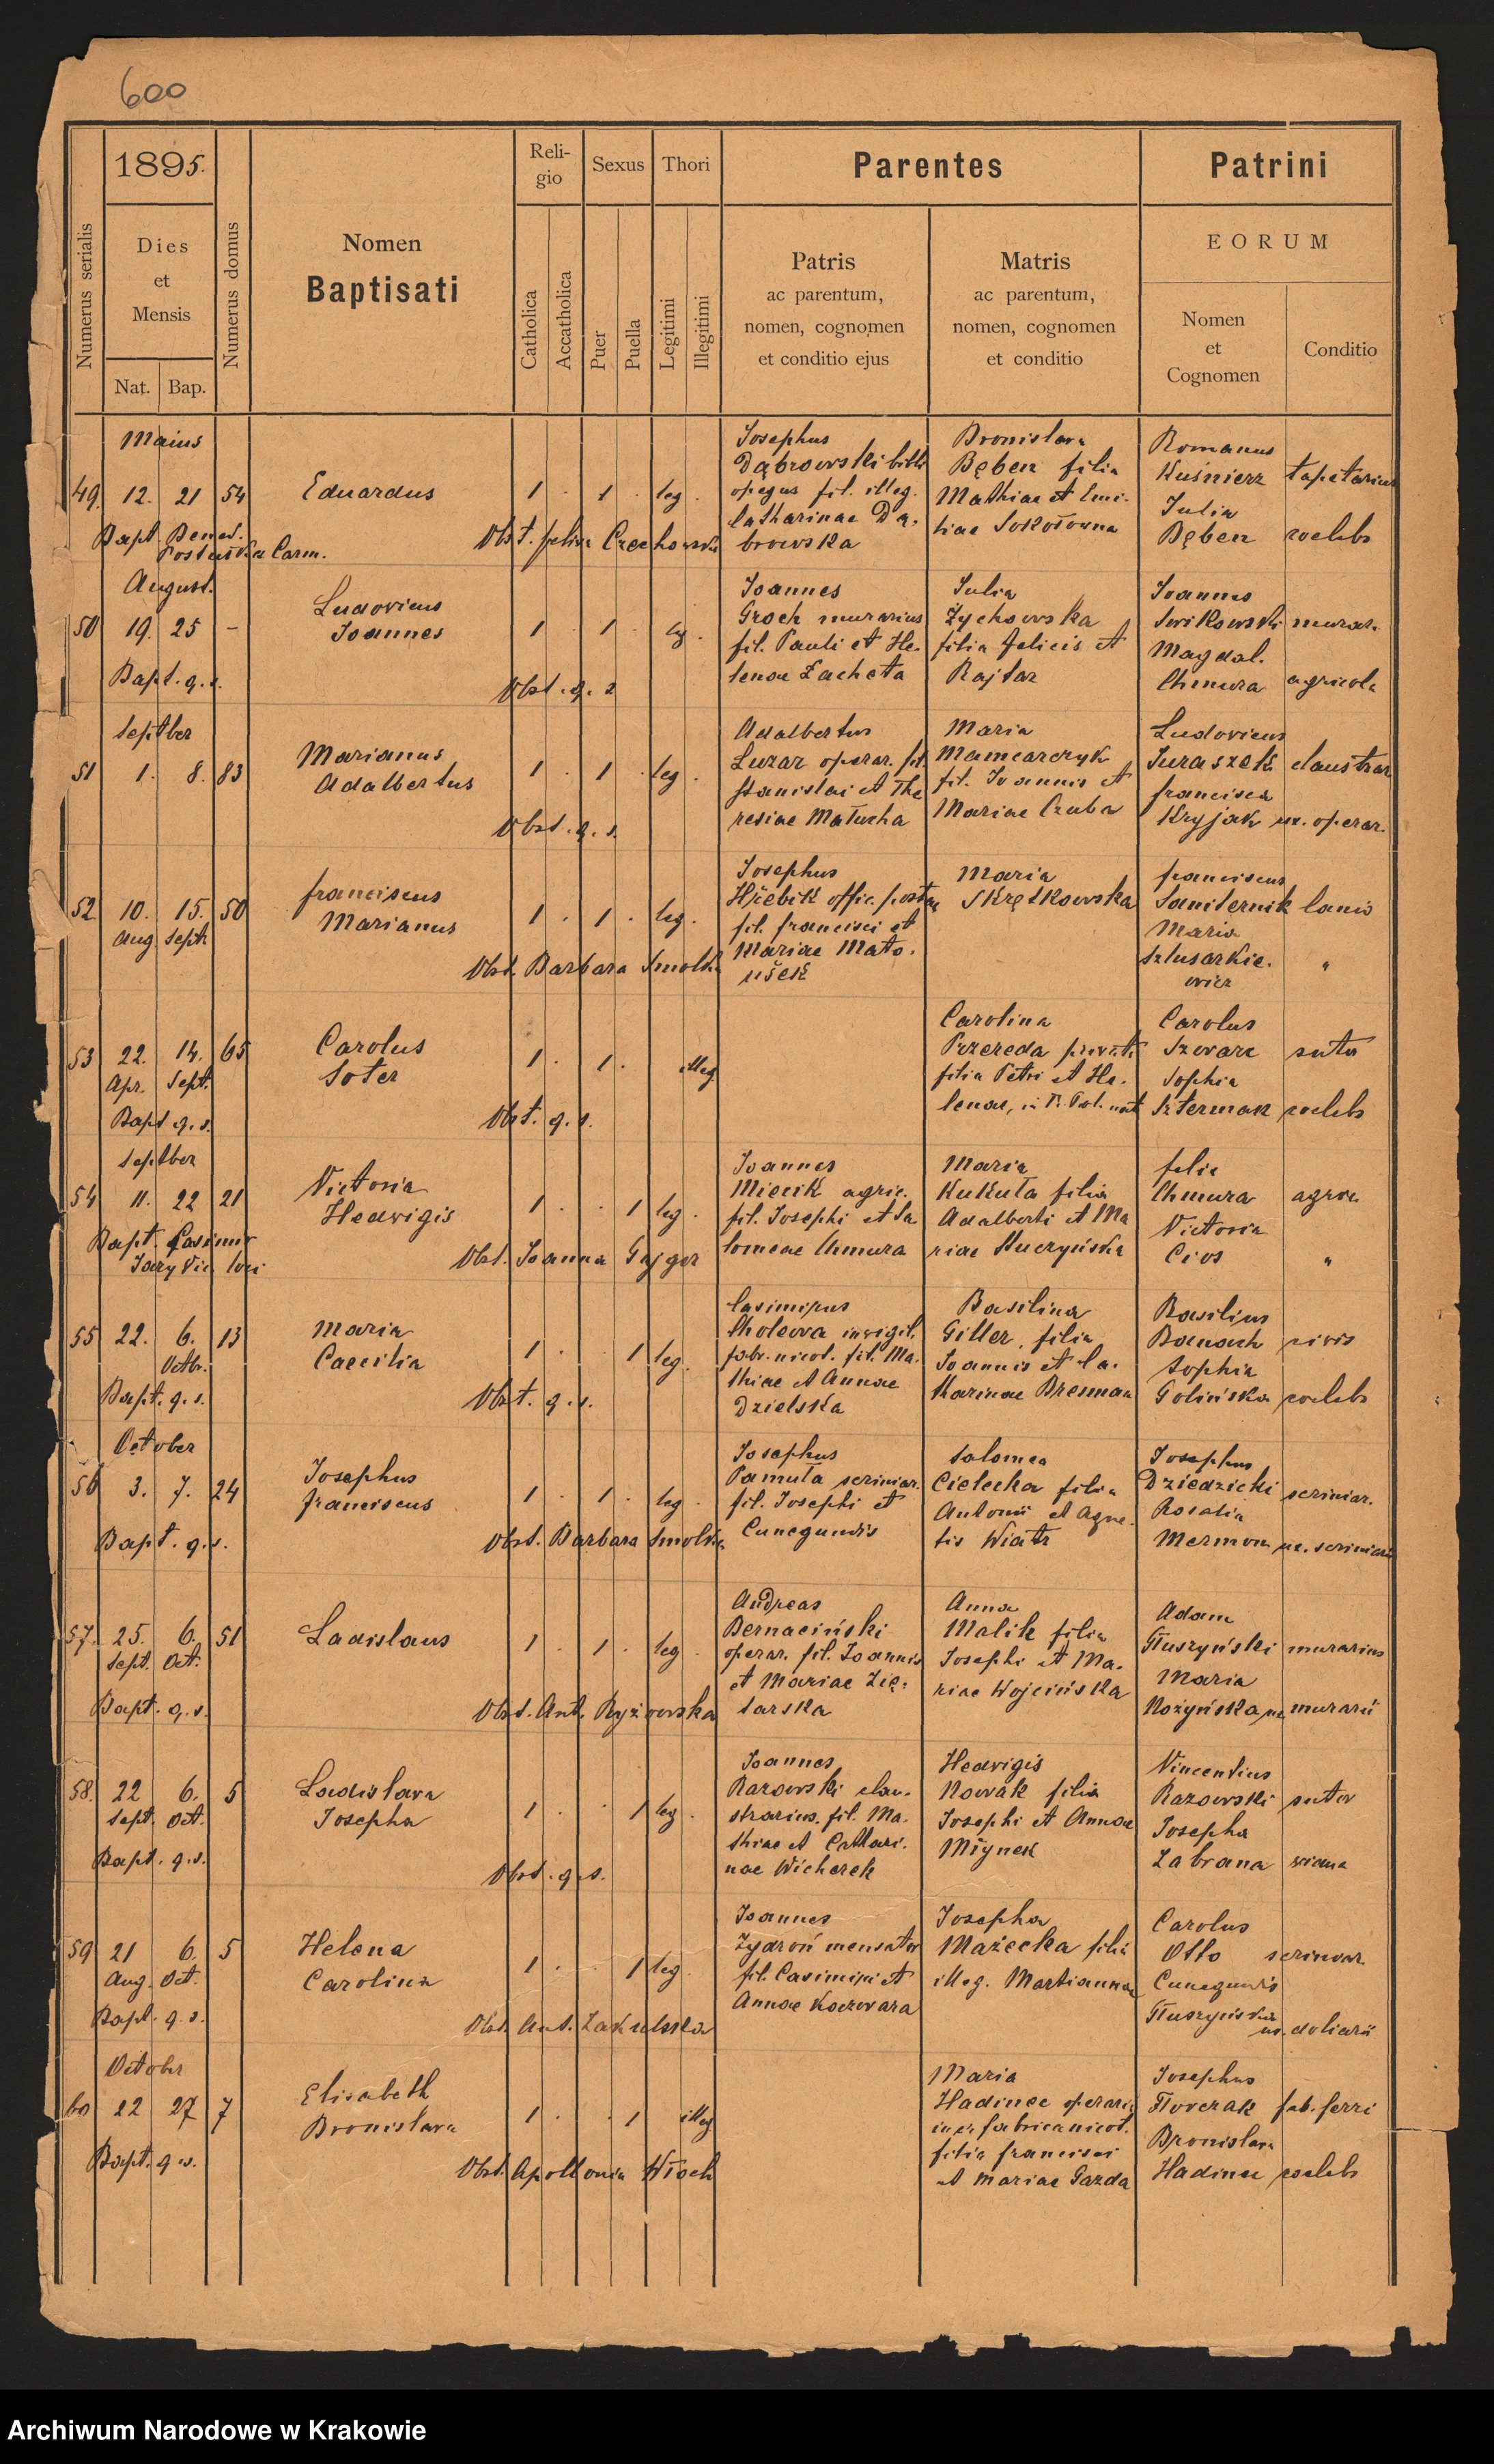 600
1895.
Reli-
gio
Sexus
Thori
Parentes
Patrini
Numerus serialis
Dies
et
Mensis
Nat.
Bap.
Numerus domus
Nomen
Baptisati
Catholica
Accatholica
Puer
Puella
Legitimi
Illegitimi
Patris
ac parentum,
nomen, cognomen
et conditio ejus
Matris
ac parentum,
nomen, cognomen
et conditio
EORUM
Nomen
et
Cognomen
Conditio
Maius
49. 12. 21 54
Eduardus
1 . 1 . leg .
Bapt. Bened.
Carm.
Obst. Felixa Czechowska
Josephus
Dąbrowski bibli
opegus fil. illeg.
Catharinae Dą-
browska
Bronislava
Bęben filia
Mathiae et Emi-
liae Sokołowna
Romanus
Kuśnierz tapetarius
Julia
Bęben coelebs
August.
50 19. 25 -
Ludovicus
Joannes
1 . 1 . leg .
Bapt. q. s.
Obst. q. s
Joannes
Groch murarius
fil. Pauli et He-
lenae Zacheta
Julia
Zychowska
filia Felicis et
Rajtar
Joannes
Świkowski murar.
Magdal.
Chmura agricola
Septber
51 1. 8. 83
Marianus
Adalbertus
1 . 1 . leg .
Obst. q. s.
Adalbertus
Luzar operar. fil.
Stanislai et The
resiae Matucha
Maria
Mamcarczyk
fil. Joannis et
Mariae Czuba
Ludovicus
Juraszek claustrar
Francisca
Kryjak ux. operar.
52 10. 15. 50
Aug Septr
Franciscus
Marianus
1 . 1 . leg .
Obst. Barbara Smolka
Josephus
Hřebik offic. postae
fil. Francisci et
Mariae Mato-
ušek
Maria
Skrętkowska
Franciscus
Saniternik lanio
Maria
Szlusarkie-
wicz "
53 22. 14. 65
Apr. Sept.
Carolus
Soter
1 . 1 . illeg
Bapt q. s.
Obst. q. s.
Carolina
Przereda privata
filia Petri et He-
lenae, in P. Pol. nat
Carolus
Szware sutor
Sophia
Szterman coelebs
Septber
54 11. 22 21
Victoria
Hedvigis
1 . . 1 leg .
Bapt. Casimir
loci
Obst. Joanna Gajger
Joannes
Miecik agric.
fil. Josephi et Sa
lomeae Chmura
Maria
Kukuła filia
Adalberti et Ma
riae Kuczyńska
Felix
Chmura agric
Victoria
Cios "
55 22. 6. 13
Octbr.
Maria
Caecilia
1 . . 1 leg.
Bapt. q. s.
Obst. q. s.
Casimirus
Cholewa invigil.
fabr. nicot. fil. Ma-
thiae et Annae
Dzielska
Basilina
Giller, filia
Joannis et Ca-
tharinae Brennan
Basilius
Banach civis
Sophia
Golińska coelebs
October
56 3. 7. 24
Josephus
Franciscus
1 . 1 . leg .
Bapt. q. s.
Obst. Barbara Smolka
Josephus
Pamuła scriniar.
fil. Josephi et
Cunegundis
Salomea
Cielecka filia
Antonii et Agne-
tis Wiatr
Josephus
Dziedzicki scriniar.
Rosalia
Mermon ux. scriniarii
57. 25. 6. 51
Sept. Oct.
Ladislaus
1 . 1 . leg .
Bapt. q. s.
Obst. Ant. Ryżowska
Andreas
Bernaciński
operar. fil. Joannis
et Mariae Zię-
tarska
Anna
Malik filia
Josephi et Ma-
riae Wojcińska
Adam
Głuszyński murarius
Maria
Nożyńska ux murarii
58. 22 6. 5
Sept. Oct.
Ladislava
Josepha
1 . . 1 leg .
Bapt. q. s.
Obst. q. s.
Joannes
Razowski clau-
strarius. fil. Ma-
thiae et Cathari-
nae Wicherek
Hedvigis
Nowak filia
Josephi et Annae
Młynek
Vincentius
Razowski sutor
Josepha
Zabrana vidua
59 21 6. 5
Aug. Oct.
Helena
Carolina
1 . . 1 leg .
Bapt. q. s.
Obst. Ant. Zakulska
Joannes
Zydroń mensator
fil. Casimiri et
Annae Kaczwara
Josepha
Mażecka filia
illeg. Martiannae
Carolus
Otto scriniar.
Cunegundis
Głuszyńska
ux. doliarii
October
60 22 27 7
Elisabeth
Bronislava
1 . . 1 illeg
Bapt. q s.
Obst. Apollonia Włoch
Maria
Hadinec operaria
in c. r. fabrica nicot.
filia Francisci
et Mariae Gazda
Josephus
Tłovczak fab. ferri
Bronislava
Hadinec coelebs
Archiwum Narodowe w Krakowie